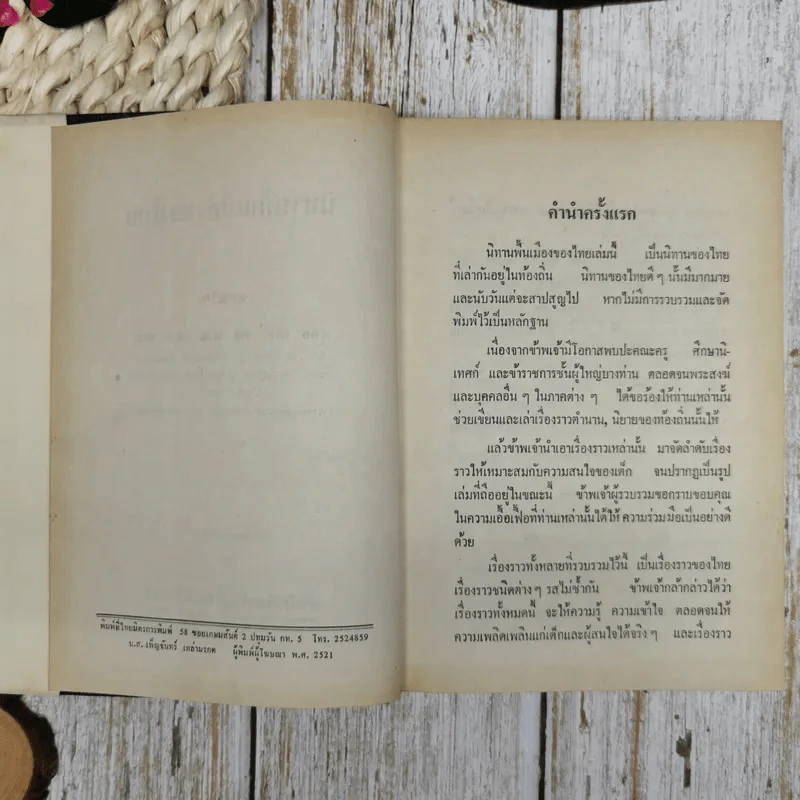 พิมพ์ที่ไทยมิตรการพิมพ์ 58 ซอยเกษมสันต์ 2 ปทุมวัน กท. 5 โทร. 2524859
น.ส. เพ็ญจันทร์ เหล่ามรกต ผู้พิมพ์ผู้โฆษณา พ.ศ. 2521
คำนำครั้งแรก
นิทานพื้นเมืองของไทยเล่มนี้ เป็นนิทานของไทย
ที่เล่ากันอยู่ในท้องถิ่น นิทานของไทยดี ๆ นั้นมีมากมาย
และนับวันแต่จะสาปสูญไป หากไม่มีการรวบรวมและจัด
พิมพ์ไว้เป็นหลักฐาน
เนื่องจากข้าพเจ้ามีโอกาสพบปะคณะครู ศึกษานิ-
เทศก์ และข้าราชการชั้นผู้ใหญ่บางท่าน ตลอดจนพระสงฆ์
และบุคคลอื่น ๆ ในภาคต่าง ๆ ได้ขอร้องให้ท่านเหล่านั้น
ช่วยเขียนและเล่าเรื่องราวตำนาน, นิยายของท้องถิ่นนั้นให้
แล้วข้าพเจ้านำเอาเรื่องราวเหล่านั้น มาจัดลำดับเรื่อง
ราวให้เหมาะสมกับความสนใจของเด็ก จนปรากฏเป็นรูป
เล่มที่ถืออยู่ในขณะนี้ ข้าพเจ้าผู้รวบรวมขอกราบขอบคุณ
ในความเอื้อเฟื้อที่ท่านเหล่านั้นได้ให้ ความร่วมมือเป็นอย่างดี
ด้วย
เรื่องราวทั้งหลายที่รวบรวมไว้นี้ เป็นเรื่องราวของไทย
เรื่องราวชนิดต่างๆ รสไม่ซ้ำกัน ข้าพเจ้ากล้ากล่าวได้ว่า
เรื่องราวทั้งหมดนี้ จะให้ความรู้ ความเข้าใจ ตลอดจนให้
ความเพลิดเพลินแก่เด็กและผู้สนใจได้จริงๆ และเรื่องราว